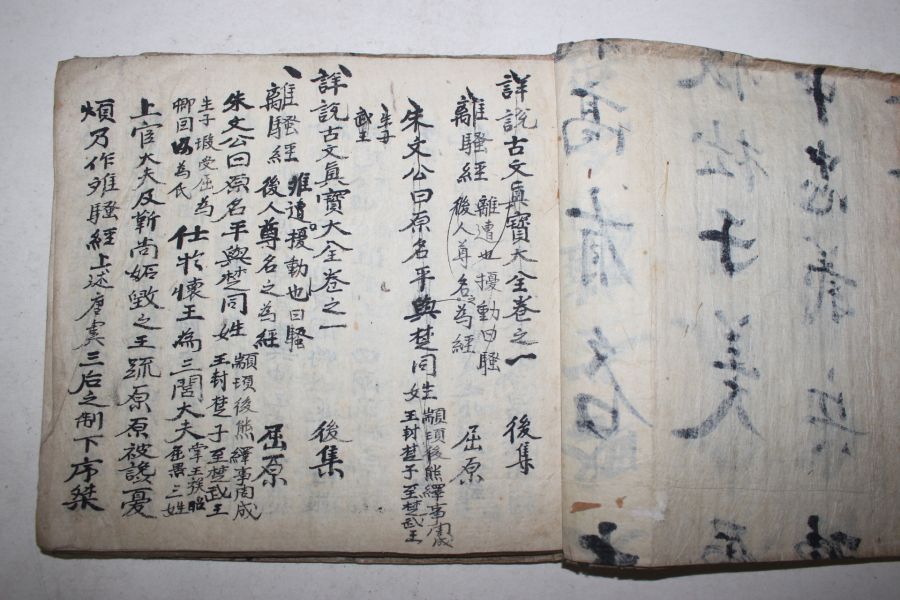 詳說古文眞寶大全卷之一 後集
離騷經 離遭也擾動曰騷
後人尊名之為經 屈原
朱文公曰原名平與楚同姓 顓頊後熊繹事周成
王封楚子至楚武王
生子
武王
詳說古文眞寶大全卷之一 後集
離騷經 離遭擾動也曰騷
後人尊名之為經 屈原
朱文公曰原名平與楚同姓 顓頊後熊繹事周成
王封楚子至楚武王
生子瑕受屈為
卿因以為氏 仕於懷王為三閭大夫 掌王族昭
屈景三姓
上官大夫及靳尚妬毁之王疏原原被讒憂
煩乃作離騷經上述唐虞三后之制下序桀
中忠義兵
士美
高有名